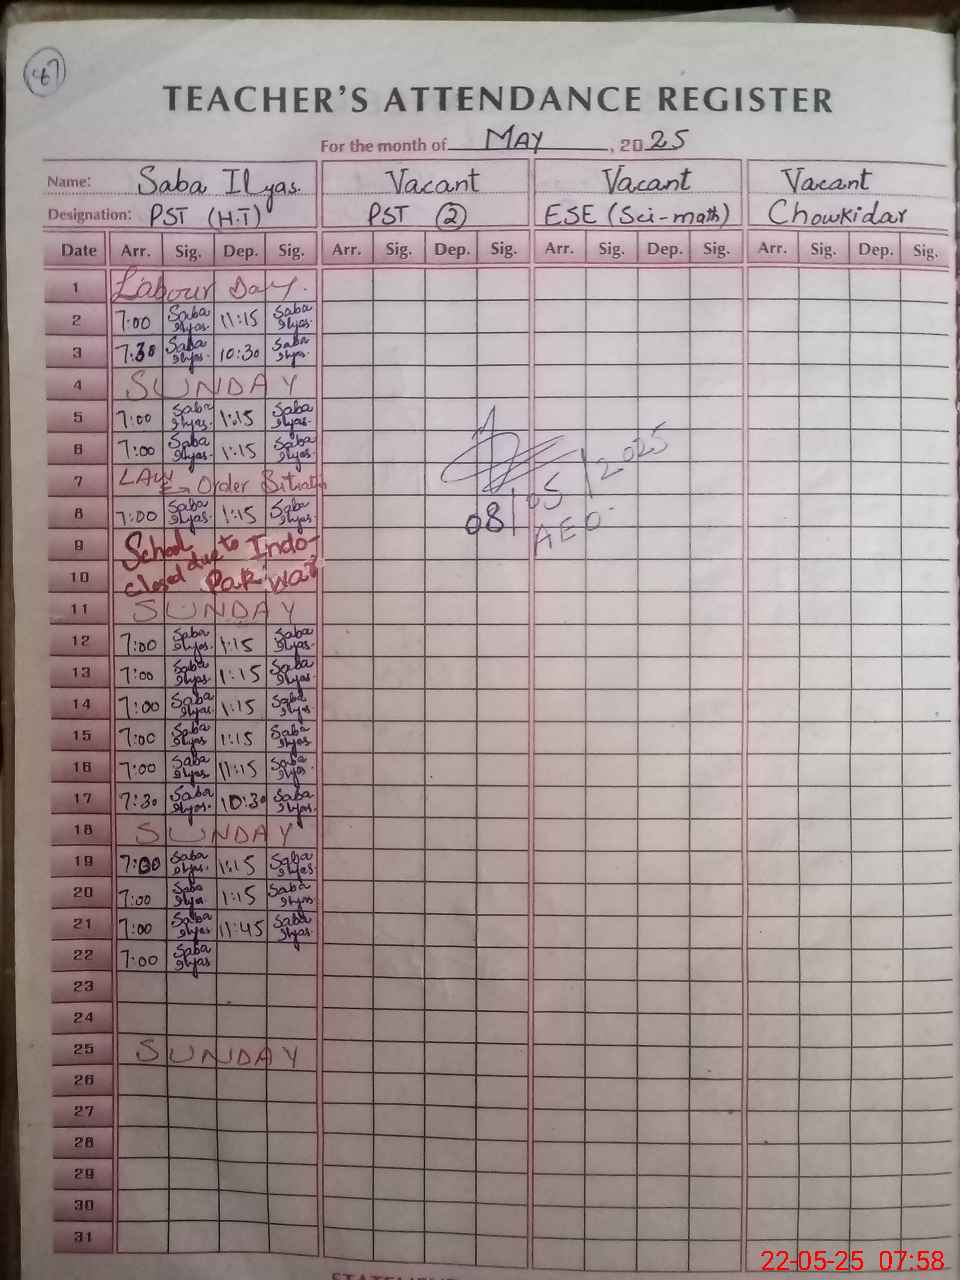 47
TEACHER'S ATTENDANCE REGISTER
For the month of MAY, 2025
Name: Saba Ilyas. Vacant Vacant Vacant
Designation: PST (H.T) PST (2) ESE (Sci-math) Chowkidar
Date Arr. Sig. Dep. Sig. Arr. Sig. Dep. Sig. Arr. Sig. Dep. Sig. Arr. Sig. Dep. Sig.
1 Labour Day.
2 7:00 Saba Ilyas. 11:15 Saba Ilyas.
3 7:30 Saba Ilyas. 10:30 Saba Ilyas.
4 SUNDAY
5 7:00 Saba Ilyas. 1:15 Saba Ilyas.
6 7:00 Saba Ilyas. 1:15 Saba Ilyas.
7 LAW Order
8 7:00 Saba Ilyas. 1:15 Saba Ilyas.
08/05/2025
AEO
9 School closed due to Indo-
10 Pak war
11 SUNDAY
12 7:00 Saba Ilyas. 1:15 Saba Ilyas.
13 7:00 Saba Ilyas. 1:15 Saba Ilyas.
14 7:00 Saba Ilyas. 1:15 Saba Ilyas.
15 7:00 Saba Ilyas 1:15 Saba Ilyas.
16 7:00 Saba Ilyas. 11:15 Saba Ilyas.
17 7:30 Saba Ilyas. 10:30 Saba Ilyas.
18 SUNDAY
19 7:00 Saba Ilyas. 1:15 Saba Ilyas
20 7:00 Saba Ilyas 1:15 Saba Ilyas
21 7:00 Saba Ilyas 11:45 Saba Ilyas.
22 7:00 Saba Ilyas
23
24
25 SUNDAY
26
27
28
29
30
31
22-05-25 07:58